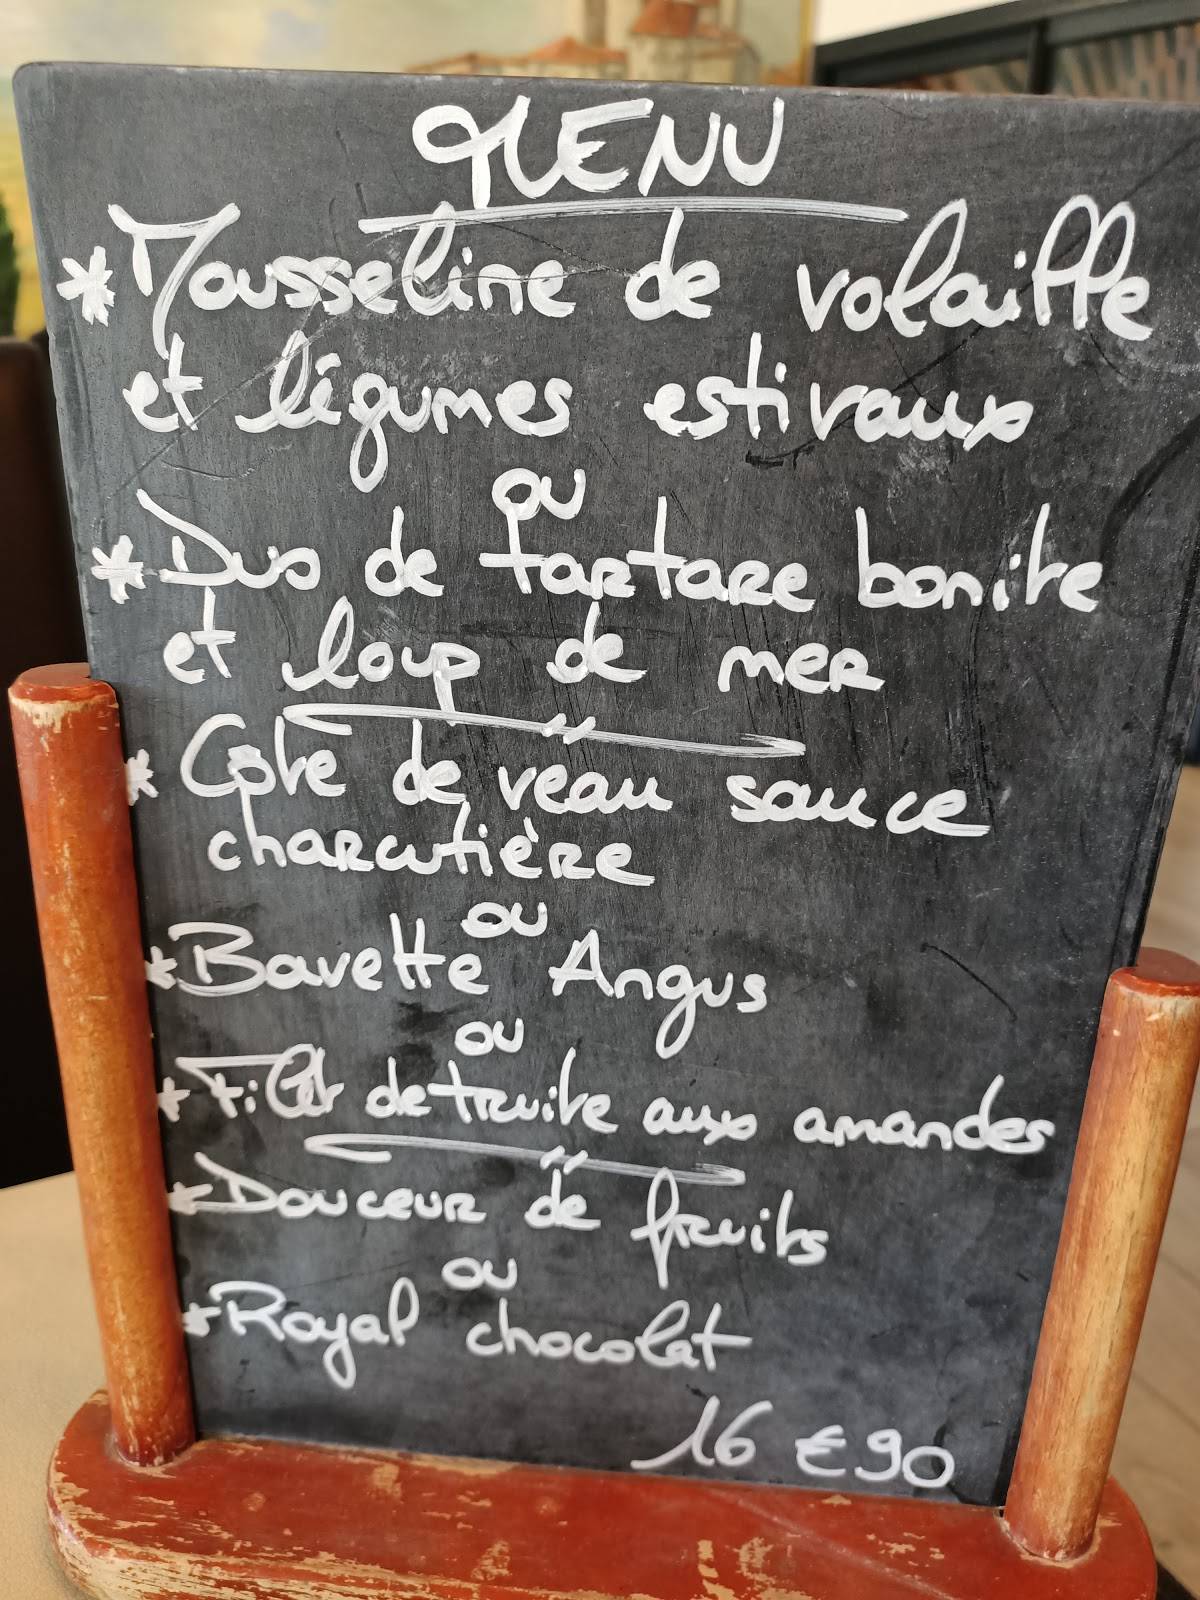 MENU
* Mousseline de volaille
et légumes estivaux
ou
* Duo de tartare bonite
et loup de mer
* Côte de veau sauce
charcutière
ou
* Bavette Angus
ou
* Filet de truite aux amandes
* Douceur de fruits
ou
* Royal chocolat
16 €90